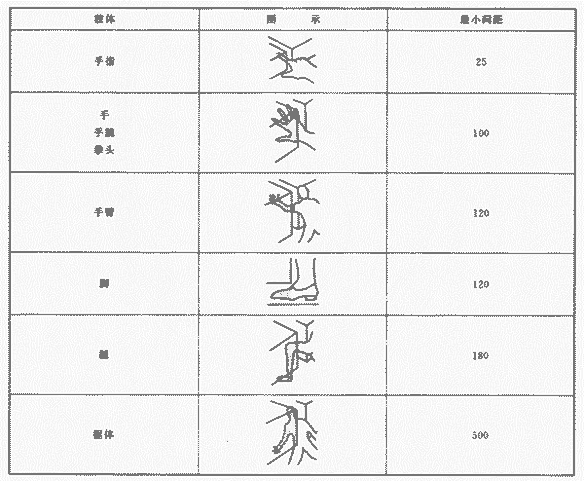 肢体 图 示 最小间距
手指 25
手
手腕
拳头
100
手臂 120
脚 120
腿 180
躯体 500